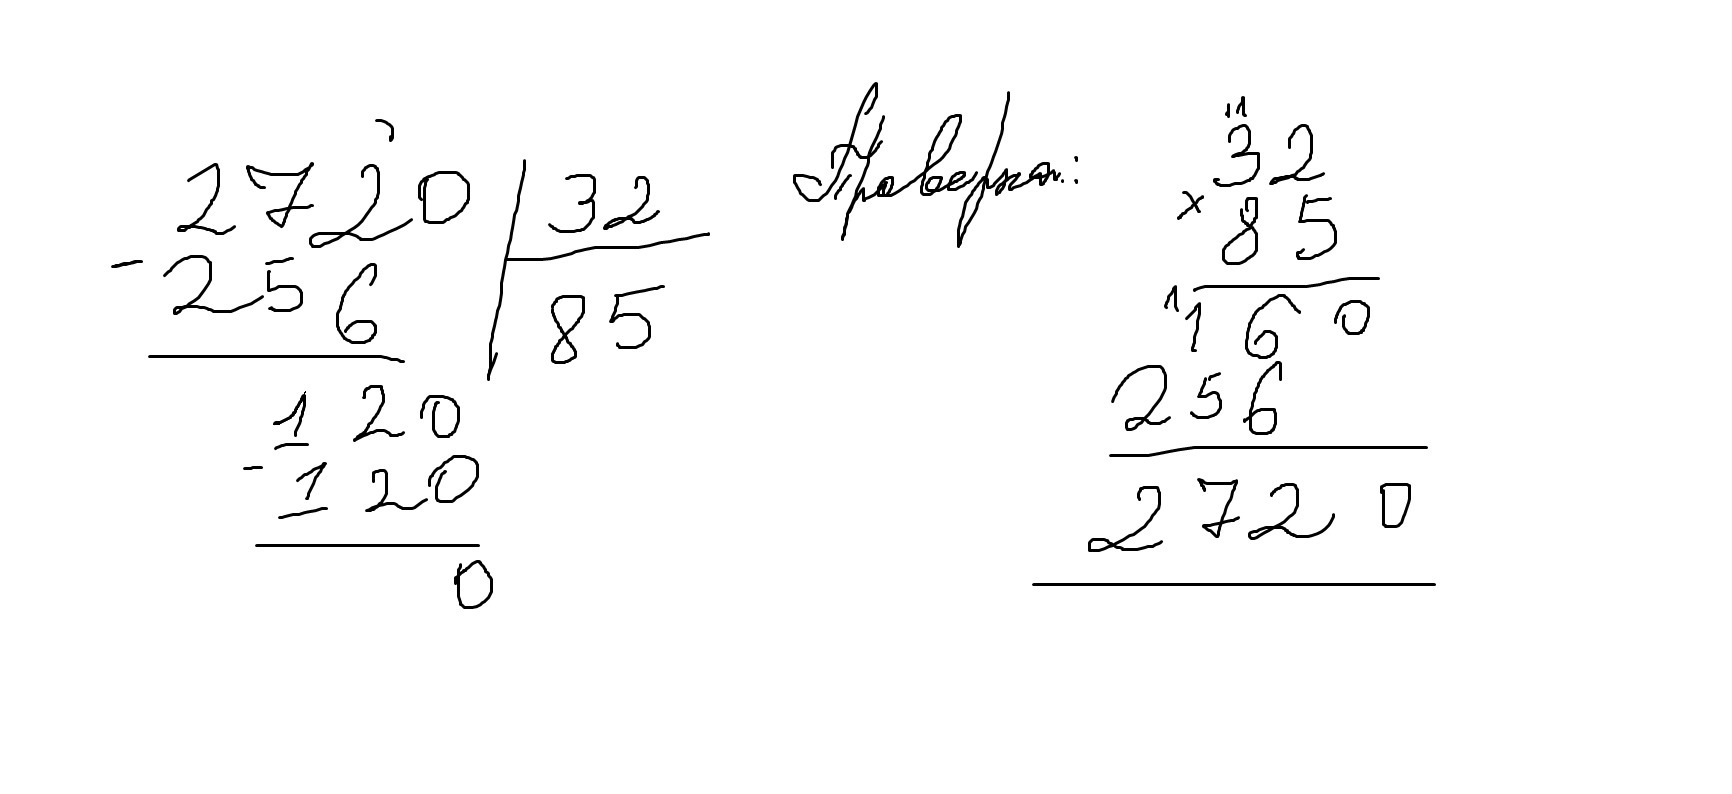 2720 | 32
- 256 | 85
120
- 120
0
Проверка:
11
32
× 85
1 160
256
2720